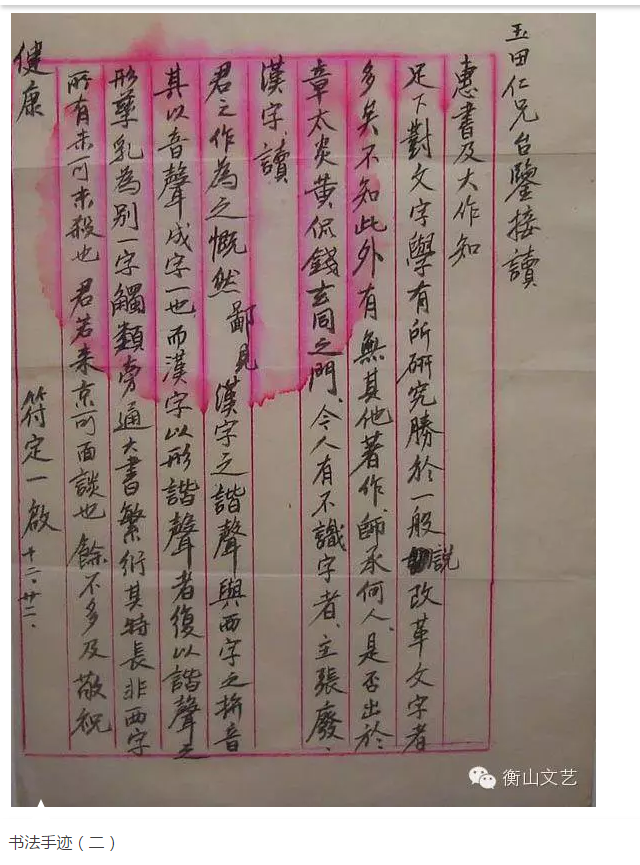 玉田仁兄台鑒接讀
惠書及大作知
足下對文字學有所研究勝於一般說改革文字者
多矣不知此外有無其他著作、師承何人、是否出於
章太炎黃侃錢玄同之門、今人有不識字者、立張廢、
漢字、讀
君之作為之慨然 鄙見漢字之諧聲與西字之拚音
其以音聲成字一也而漢字以形諧聲者復以諧聲之
形孳乳為別一字觸類旁通大書繁衍其特長非西字
所有未可末殺也 君若來京可面談也 餘不多及敬祝
健康
符定一啟 十二、廿二、
衡山文艺
书法手迹（二）